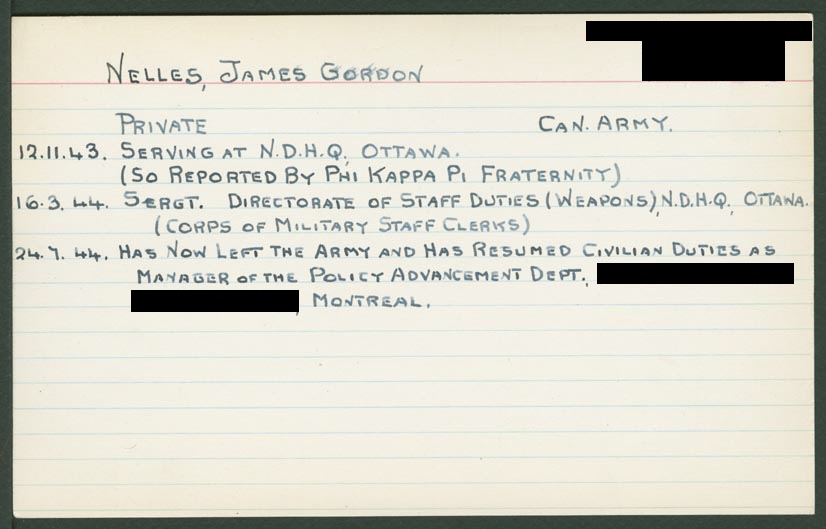 NELLES, JAMES GORDON
PRIVATE CAN. ARMY.
12.11.43. SERVING AT N.D.H.Q. OTTAWA.
(SO REPORTED BY PHI KAPPA PI FRATERNITY)
16.3.44. SERGT. DIRECTORATE OF STAFF DUTIES (WEAPONS), N.D.H.Q., OTTAWA.
(CORPS OF MILITARY STAFF CLERKS)
24.7.44. HAS NOW LEFT THE ARMY AND HAS RESUMED CIVILIAN DUTIES AS
MANAGER OF THE POLICY ADVANCEMENT DEPT.,
, MONTREAL.